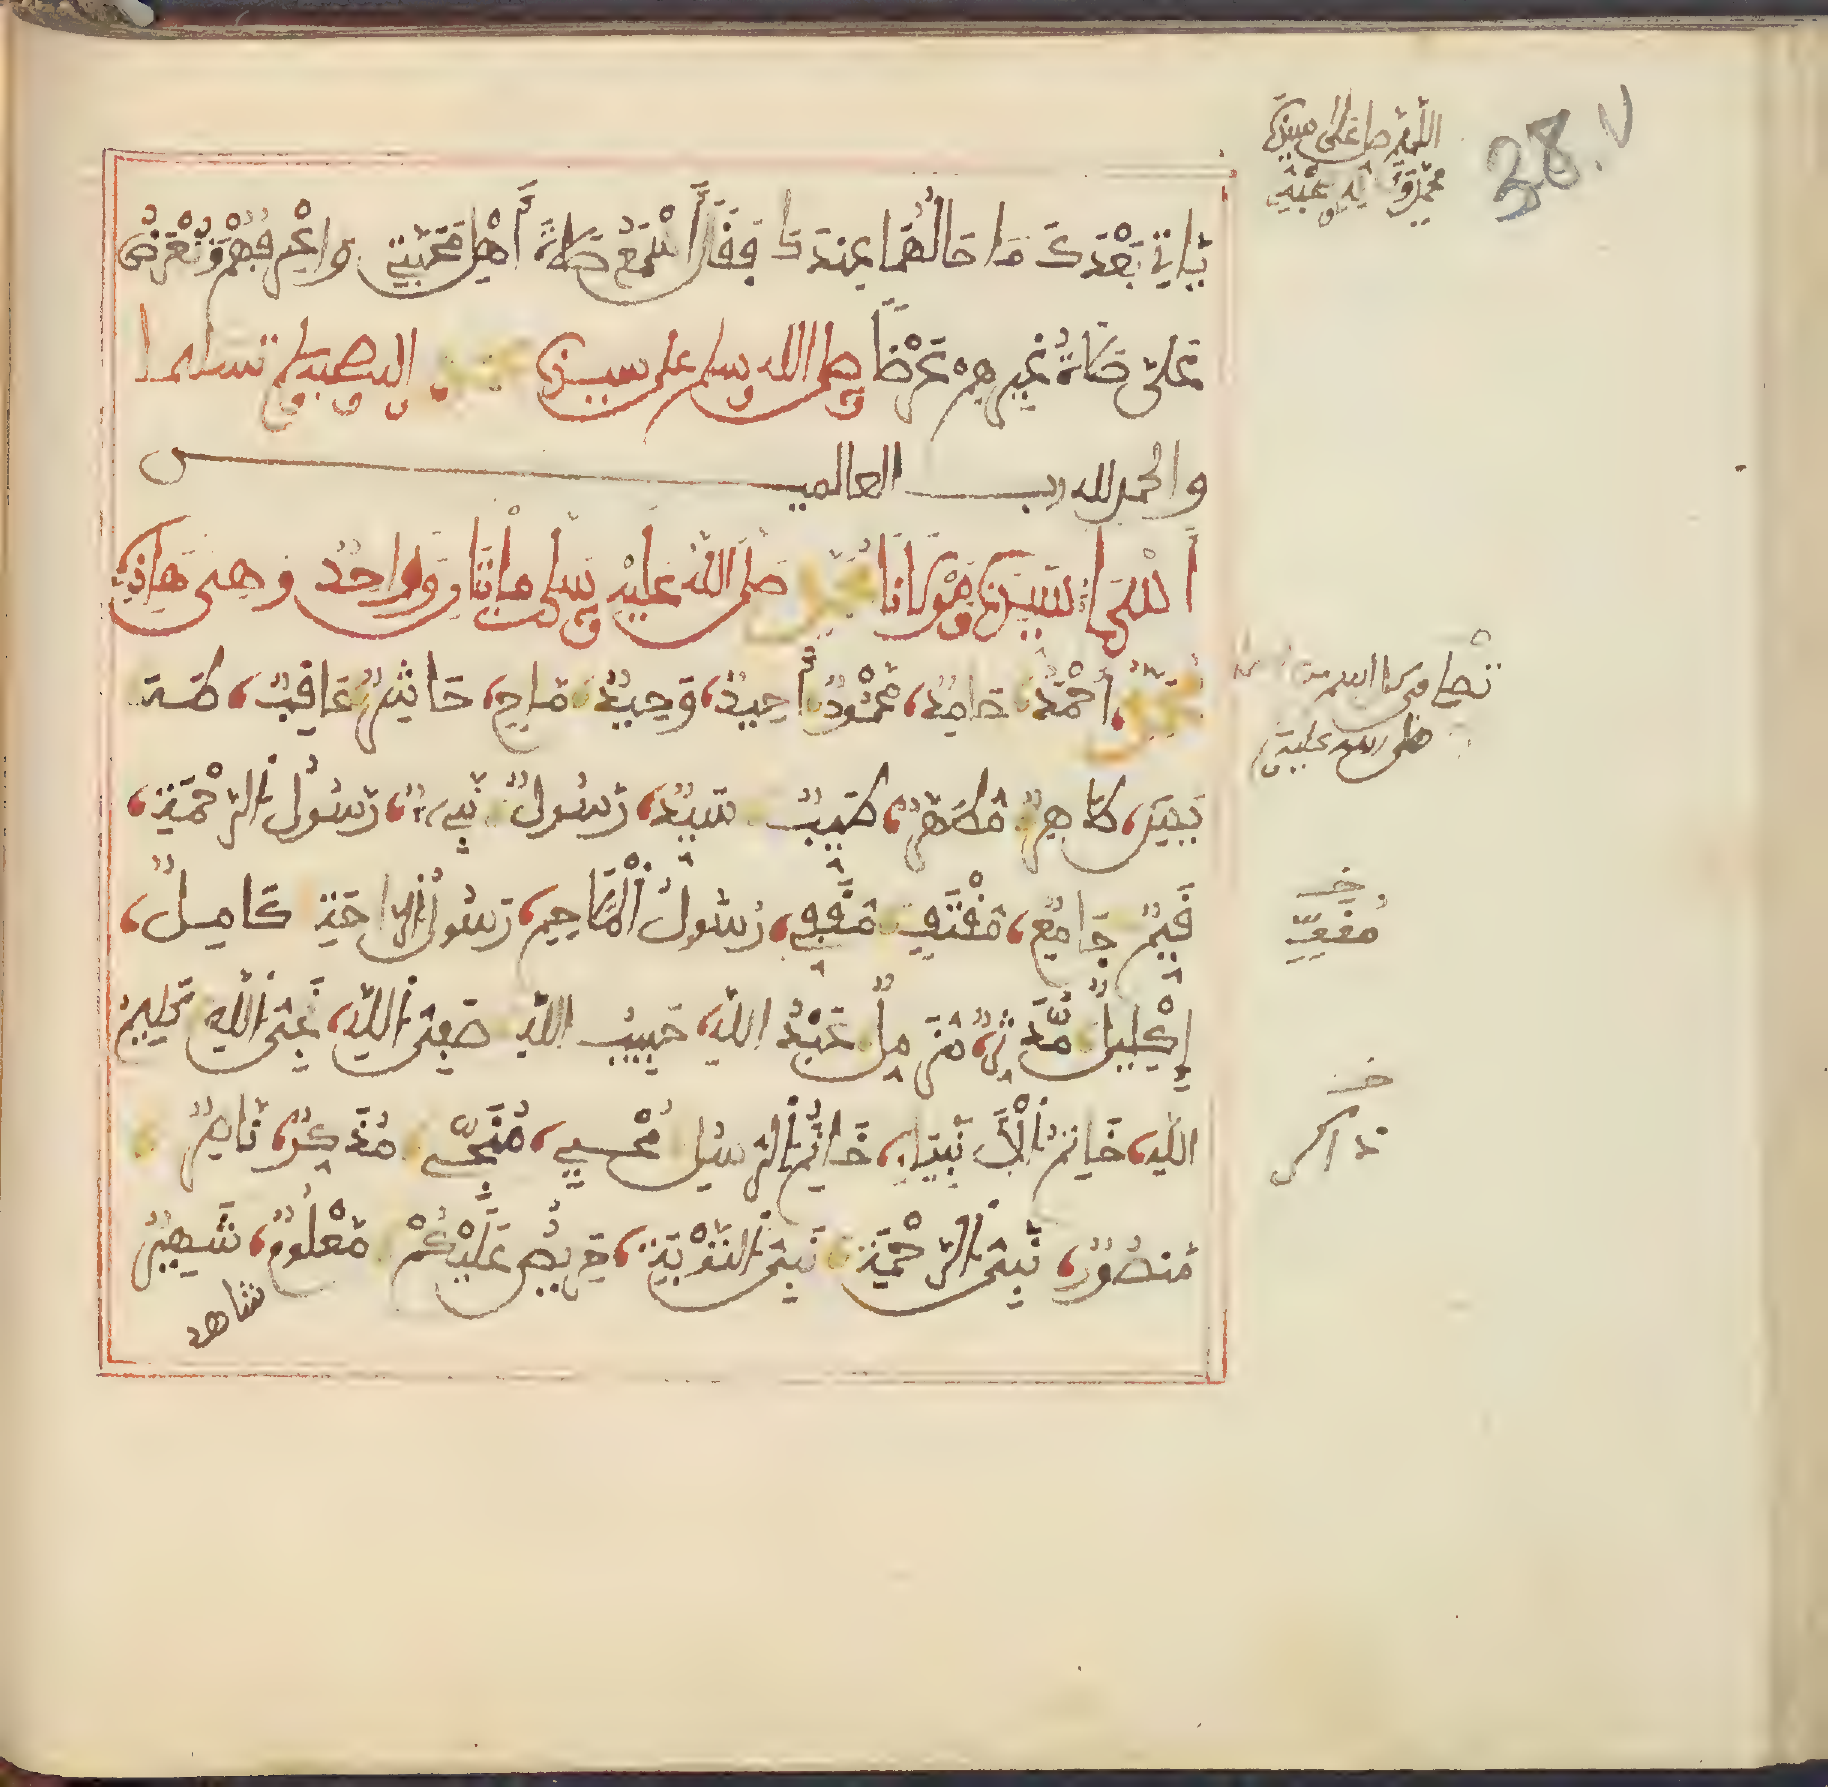 اللهم صل على سيدنا
محمد وءاله وصحبه
28.v
يَاتِي بَعْدَكَ مَا حَالُهُمَا عِندَكَ فَقَالَ أَسْمَعُ صَلَاةَ أَهْلِ مَحَبَّتِي وَأَعْرِفُهُمْ وَتُعْرَضُ
عَلَيَّ صَلَاةُ غَيْرِهِمْ عَرْضًا صلى الله وسلم على سيدنا محمد وءاله وصحبه وسلم تسليما
والحمد لله رب العالمين
أَسْمَاءُ سَيِّدِنَا وَمَوْلَانَا مُحَمَّدٍ صَلَّى اللهُ عَلَيْهِ وَسَلَّمَ مِائَتَانِ وَوَاحِدٌ وَهِيَ هَاذِهِ
مُحَمَّدٌ، أَحْمَدُ، حَامِدٌ، مَحْمُودٌ، أَحِيدٌ، وَحِيدٌ، مَاحٍ، حَاشِرٌ، عَاقِبٌ، طَهَ
يَسِ، طَاهِرٌ، مُطَهَّرٌ، طَيِّبٌ، سَيِّدٌ، رَسُولٌ، نَبِيءٌ، رَسُولُ الرَّحْمَةِ،
قَيِّمٌ، جَامِعٌ، مُقْتَفٍ، مُقَفِّي، رَسُولُ الْمَلَاحِمِ، رَسُولُ الرَّاحَةِ، كَامِلٌ،
إِكْلِيلٌ، مُدَّثِّرٌ، مُزَّمِّلٌ، عَبْدُ اللهِ، حَبِيبُ اللهِ، صَفِيُّ اللهِ، نَجِيُّ اللهِ، كَلِيمُ
اللهِ، خَاتِمُ الْأَنْبِيَاءِ، خَاتِمُ الرُّسُلِ، مُحْيِي، مُنَجِّي، مُذَكِّرٌ، نَاصِرٌ
مَنصُورٌ، نَبِيُّ الرَّحْمَةِ، نَبِيُّ التَّوْبَةِ، حَرِيصٌ عَلَيْكُمْ، مَعْلُومٌ، شَهِيرٌ
شاهد
صلى الله عليه
خ
مقفى
خ
ذاكر